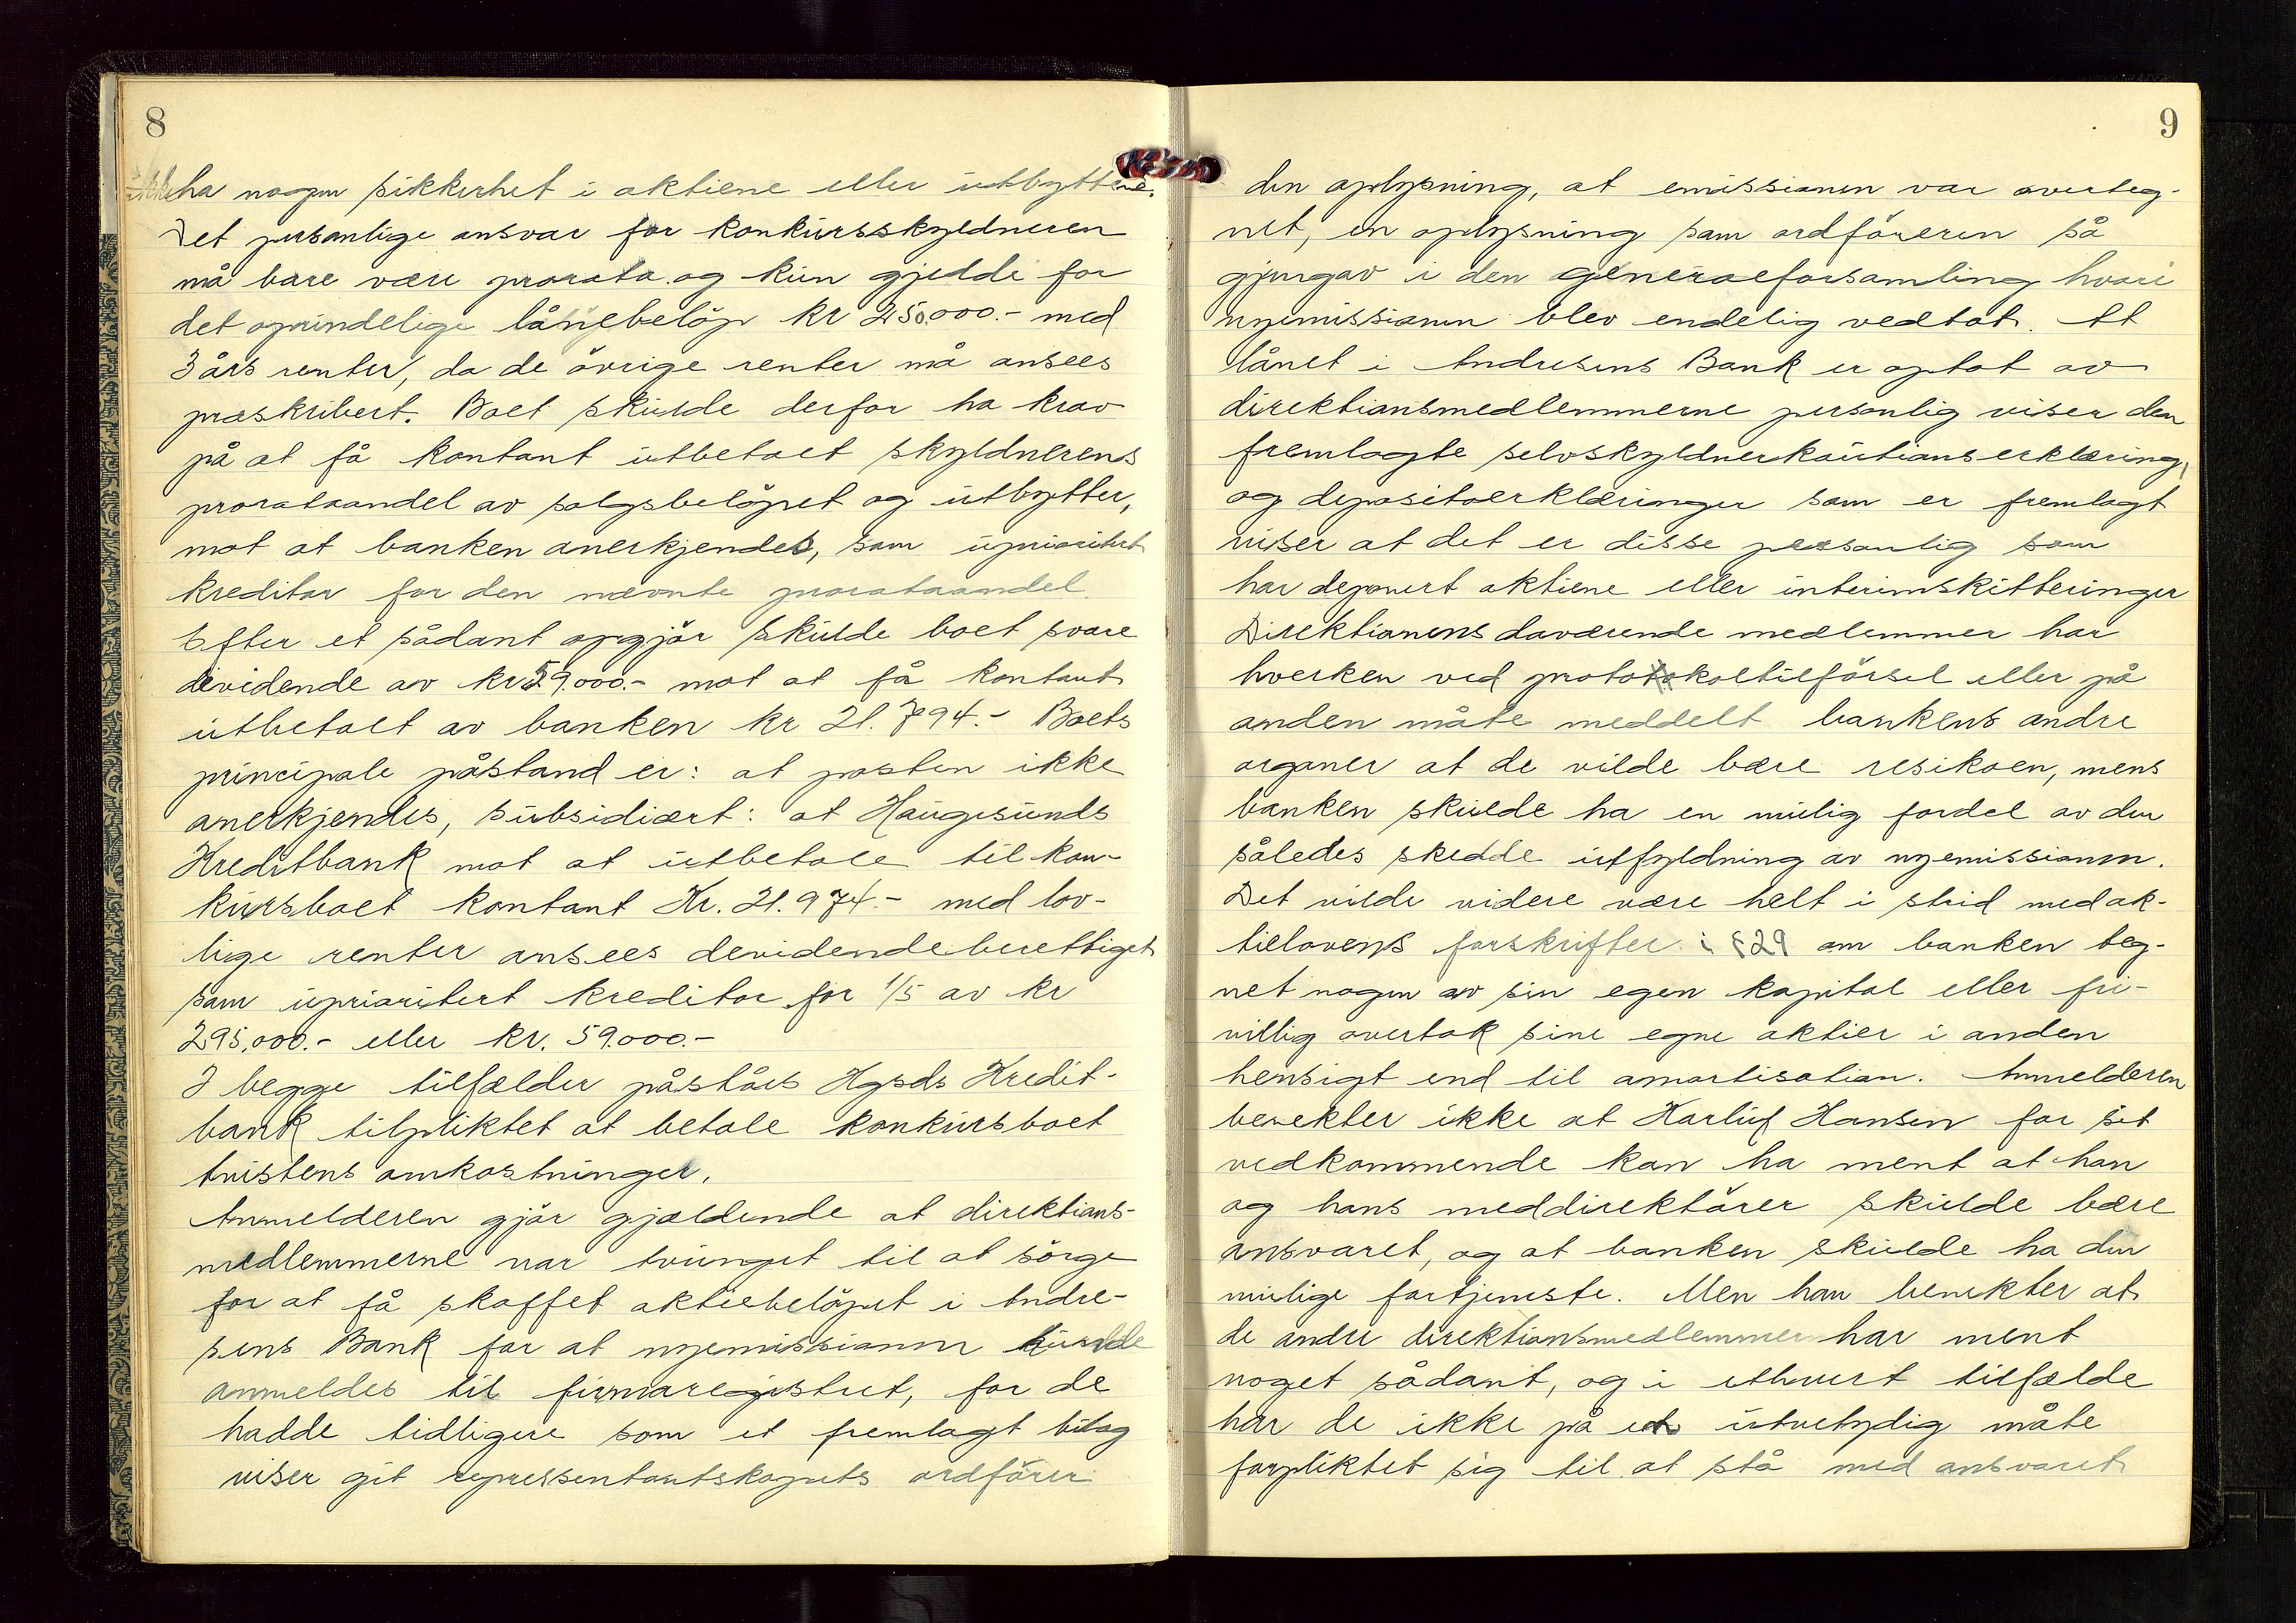 8
ikke ha nogen sikkerhet i aktiene eller utbyttene.
Det personlige ansvar for konkursskyldneren
må bare være prorata og kun gjelde for
det oprindelige lånebeløp kr 250.000.- med
3 års renter, da de övrige renter må ansees
præskribert. Boet skulde derfor ha krav
på at få kontant utbetalt skyldnerens
prorataandel av salgsbelöpet og utbytter,
mot at banken anerkjendes, som uprioritert
kreditor for den nævnte prorataandel
Efter et sådant opgjör skulde boet svare
devidende av kr 59.000.- mot at få kontant
utbetalt av banken kr 21.794.- Boets
principale påstand er: at posten ikke
anerkjendes, subsidiært: at Haugesunds
Kreditbank mot at utbetale til kon-
kursboet kontant Kr. 21.974.- med lov-
lige renter ansees devidendeberettiget
som uprioritert kreditor for 1/5 av kr
295.000.- eller kr. 59.000.-
I begge tilfælder påståes Hgsds Kredit-
bank tilpliktet at betale konkursboet
tvistens omkostninger.
Anmelderen gjör gjældende at direktions-
medlemmerne var tvunget til at sörge
for at få skaffet aktiebelöpet i Andre-
sens Bank for at nyemissionen kunde
anmeldes til firmaregistret, for de
hadde tidligere som et fremlagt bilag
viser git representantskapets ordförer
9
den oplysning, at emissionen var overteg-
net, en oplysning som ordföreren så
gjengav i den generalforsamling hvori
nyemissionen blev endelig vedtat. At
lånet i Andresens Bank er optat av
direktionsmedlemmerne personlig viser den
fremlagte selvskyldnerkautionserklæring,
og depositoerklæringer som er fremlagt
viser at det er disse personlig som
har deponert aktiene eller interimskitteringer
Direktionens daværende medlemmer har
hverken ved protokoltilförsel eller på
anden måte meddelt bankens andre
organer at de vilde bære resikoen, mens
banken skulde ha en mulig fordel av den
således skedde utfyldning av nyemissionen.
Det vilde videre være helt i strid med ak-
tielovens forskrifter i §29 om banken teg-
net nogen av sin egen kapital eller fri-
villig overtok sine egne aktier i anden
hensigt end til amortisation. Anmelderen
benekter ikke at Harluf Hansen for sit
vedkommende kan ha ment at han
og hans meddirektörer skulde bære
ansvaret, og at banken skulde ha den
mulige fortjeneste. Men han benekter at
de andre direktionsmedlemmer har ment
noget sådant, og i ethvert tilfælde
har de ikke på en utvetydig måte
forpliktet sig til at stå med ansvaret